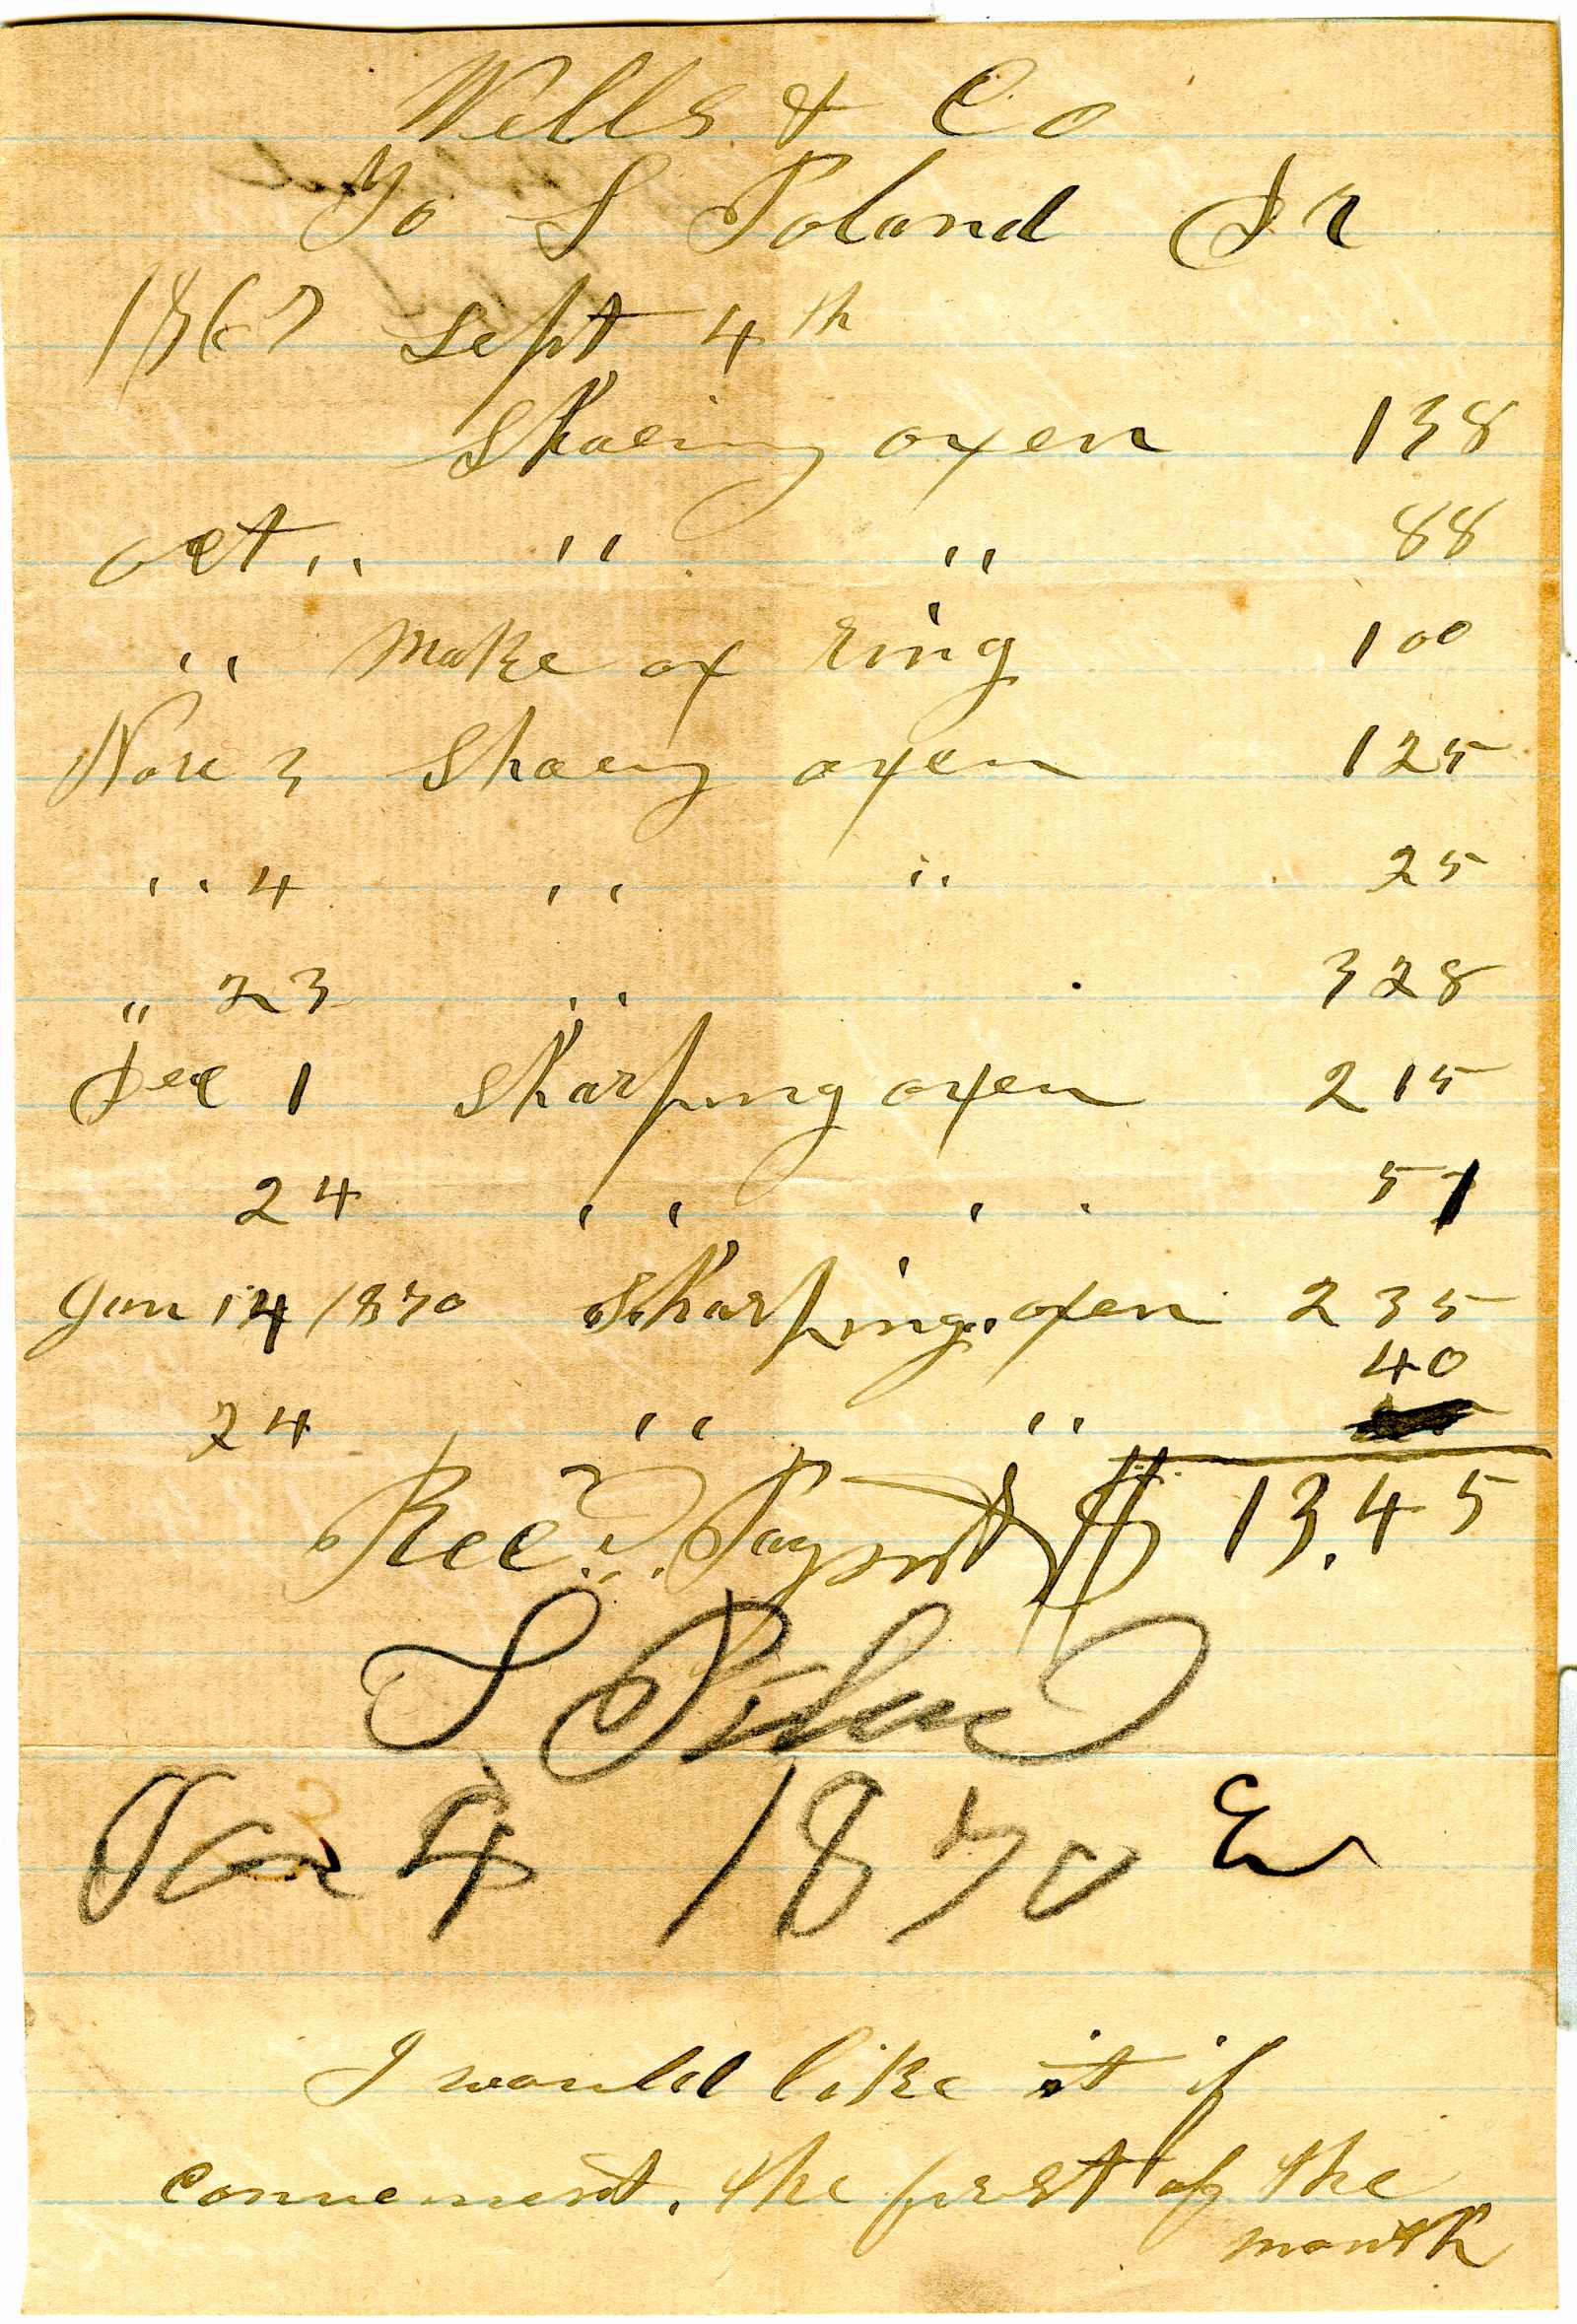 Wells & Co
To S Poland Dr
1869 Sept 4th
Shoeing oxen 138
oct " " " 88
" Make ox ring 100
Nove 3 Shoeng oxen 125
" 4 " " 25
" 23 " 328
Dec 1 Sharping oxen 215
24 " " 51
Jan 14 1870 Sharping oxen 235
40
24 " "
Recd Paymt $ 13.45
S Poland
4 1870
I would like it if
convenient. the first of the
month